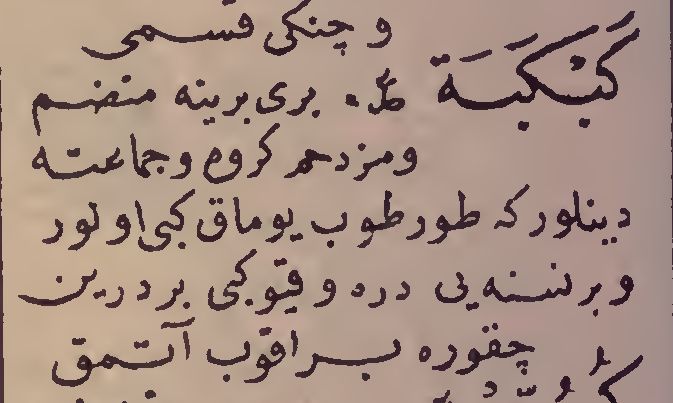 و چنكی قسمی
كَبْكَبَة ط. بری برینه منضم
ومزدحم كروه وجماعته
دینلور كه طور طوب یوماق كبی اولور
وبرنسنه یی دره وقیو كبی بر درین
چقوره براقوب آتمق